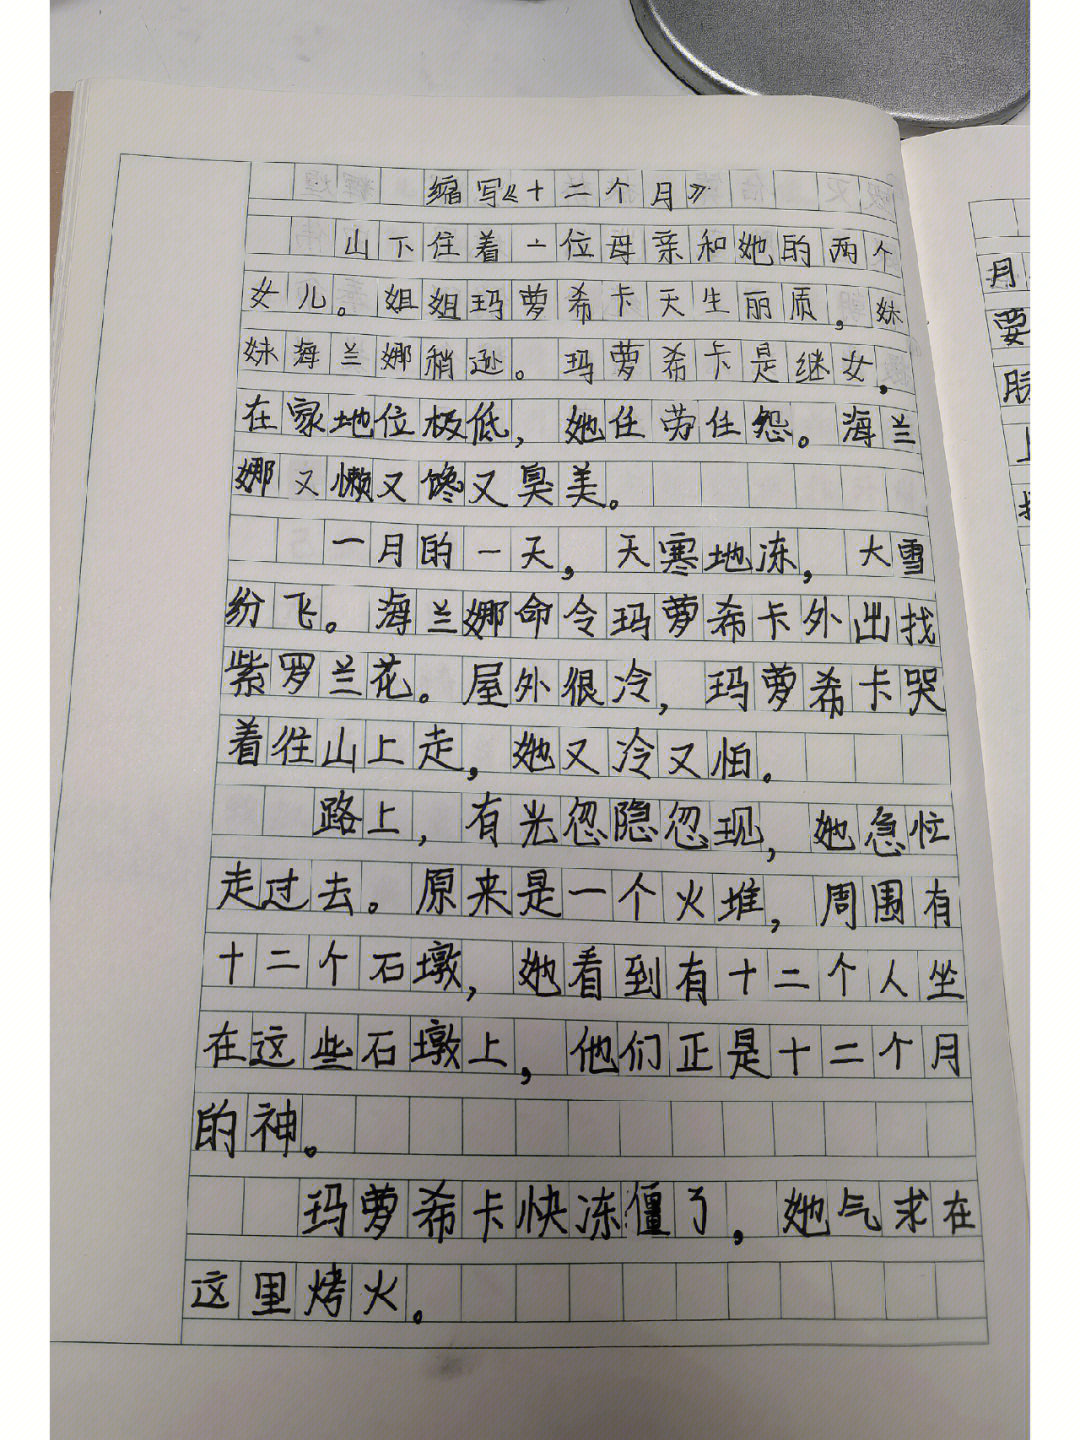 缩写《十二个月》
山下住着一位母亲和她的两个
女儿。姐姐玛萝希卡天生丽质，妹
妹海兰娜稍逊。玛萝希卡是继女，
在家地位极低，她任劳任怨。海兰
娜又懒又馋又臭美。
一月的一天，天寒地冻，大雪
纷飞。海兰娜命令玛萝希卡外出找
紫罗兰花。屋外很冷，玛萝希卡哭
着往山上走，她又冷又怕。
路上，有光忽隐忽现，她急忙
走过去。原来是一个火堆，周围有
十二个石墩，她看到有十二个人坐
在这些石墩上，他们正是十二个月
的神。
玛萝希卡快冻僵了，她气求在
这里烤火。
月
要
上